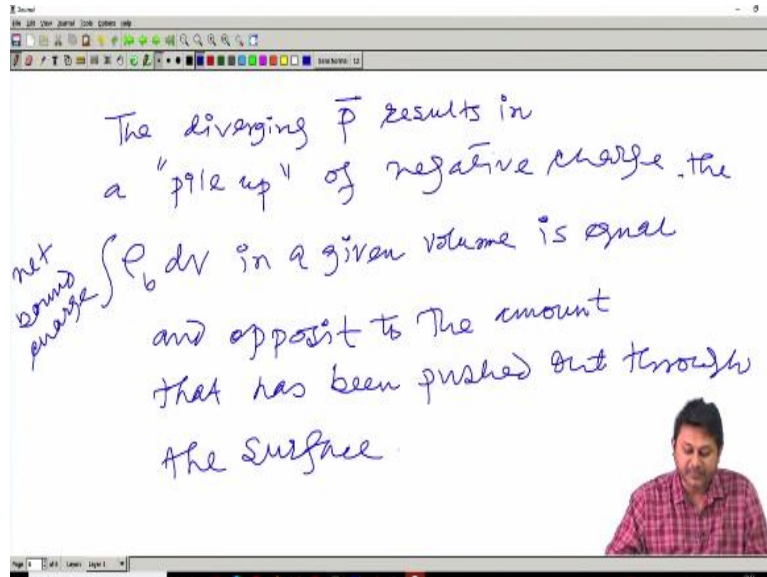 Journal
File Edit View Journal Tools Options Help
Sans Normal 12
The diverging P̄ results in
a "pile up" of negative charge. the
net bound charge ∫ρ_b dv in a given volume is equal
and opposit to The amount
that has been pushed out through
the surface.
Page 6 of 6 Layer: Layer 1